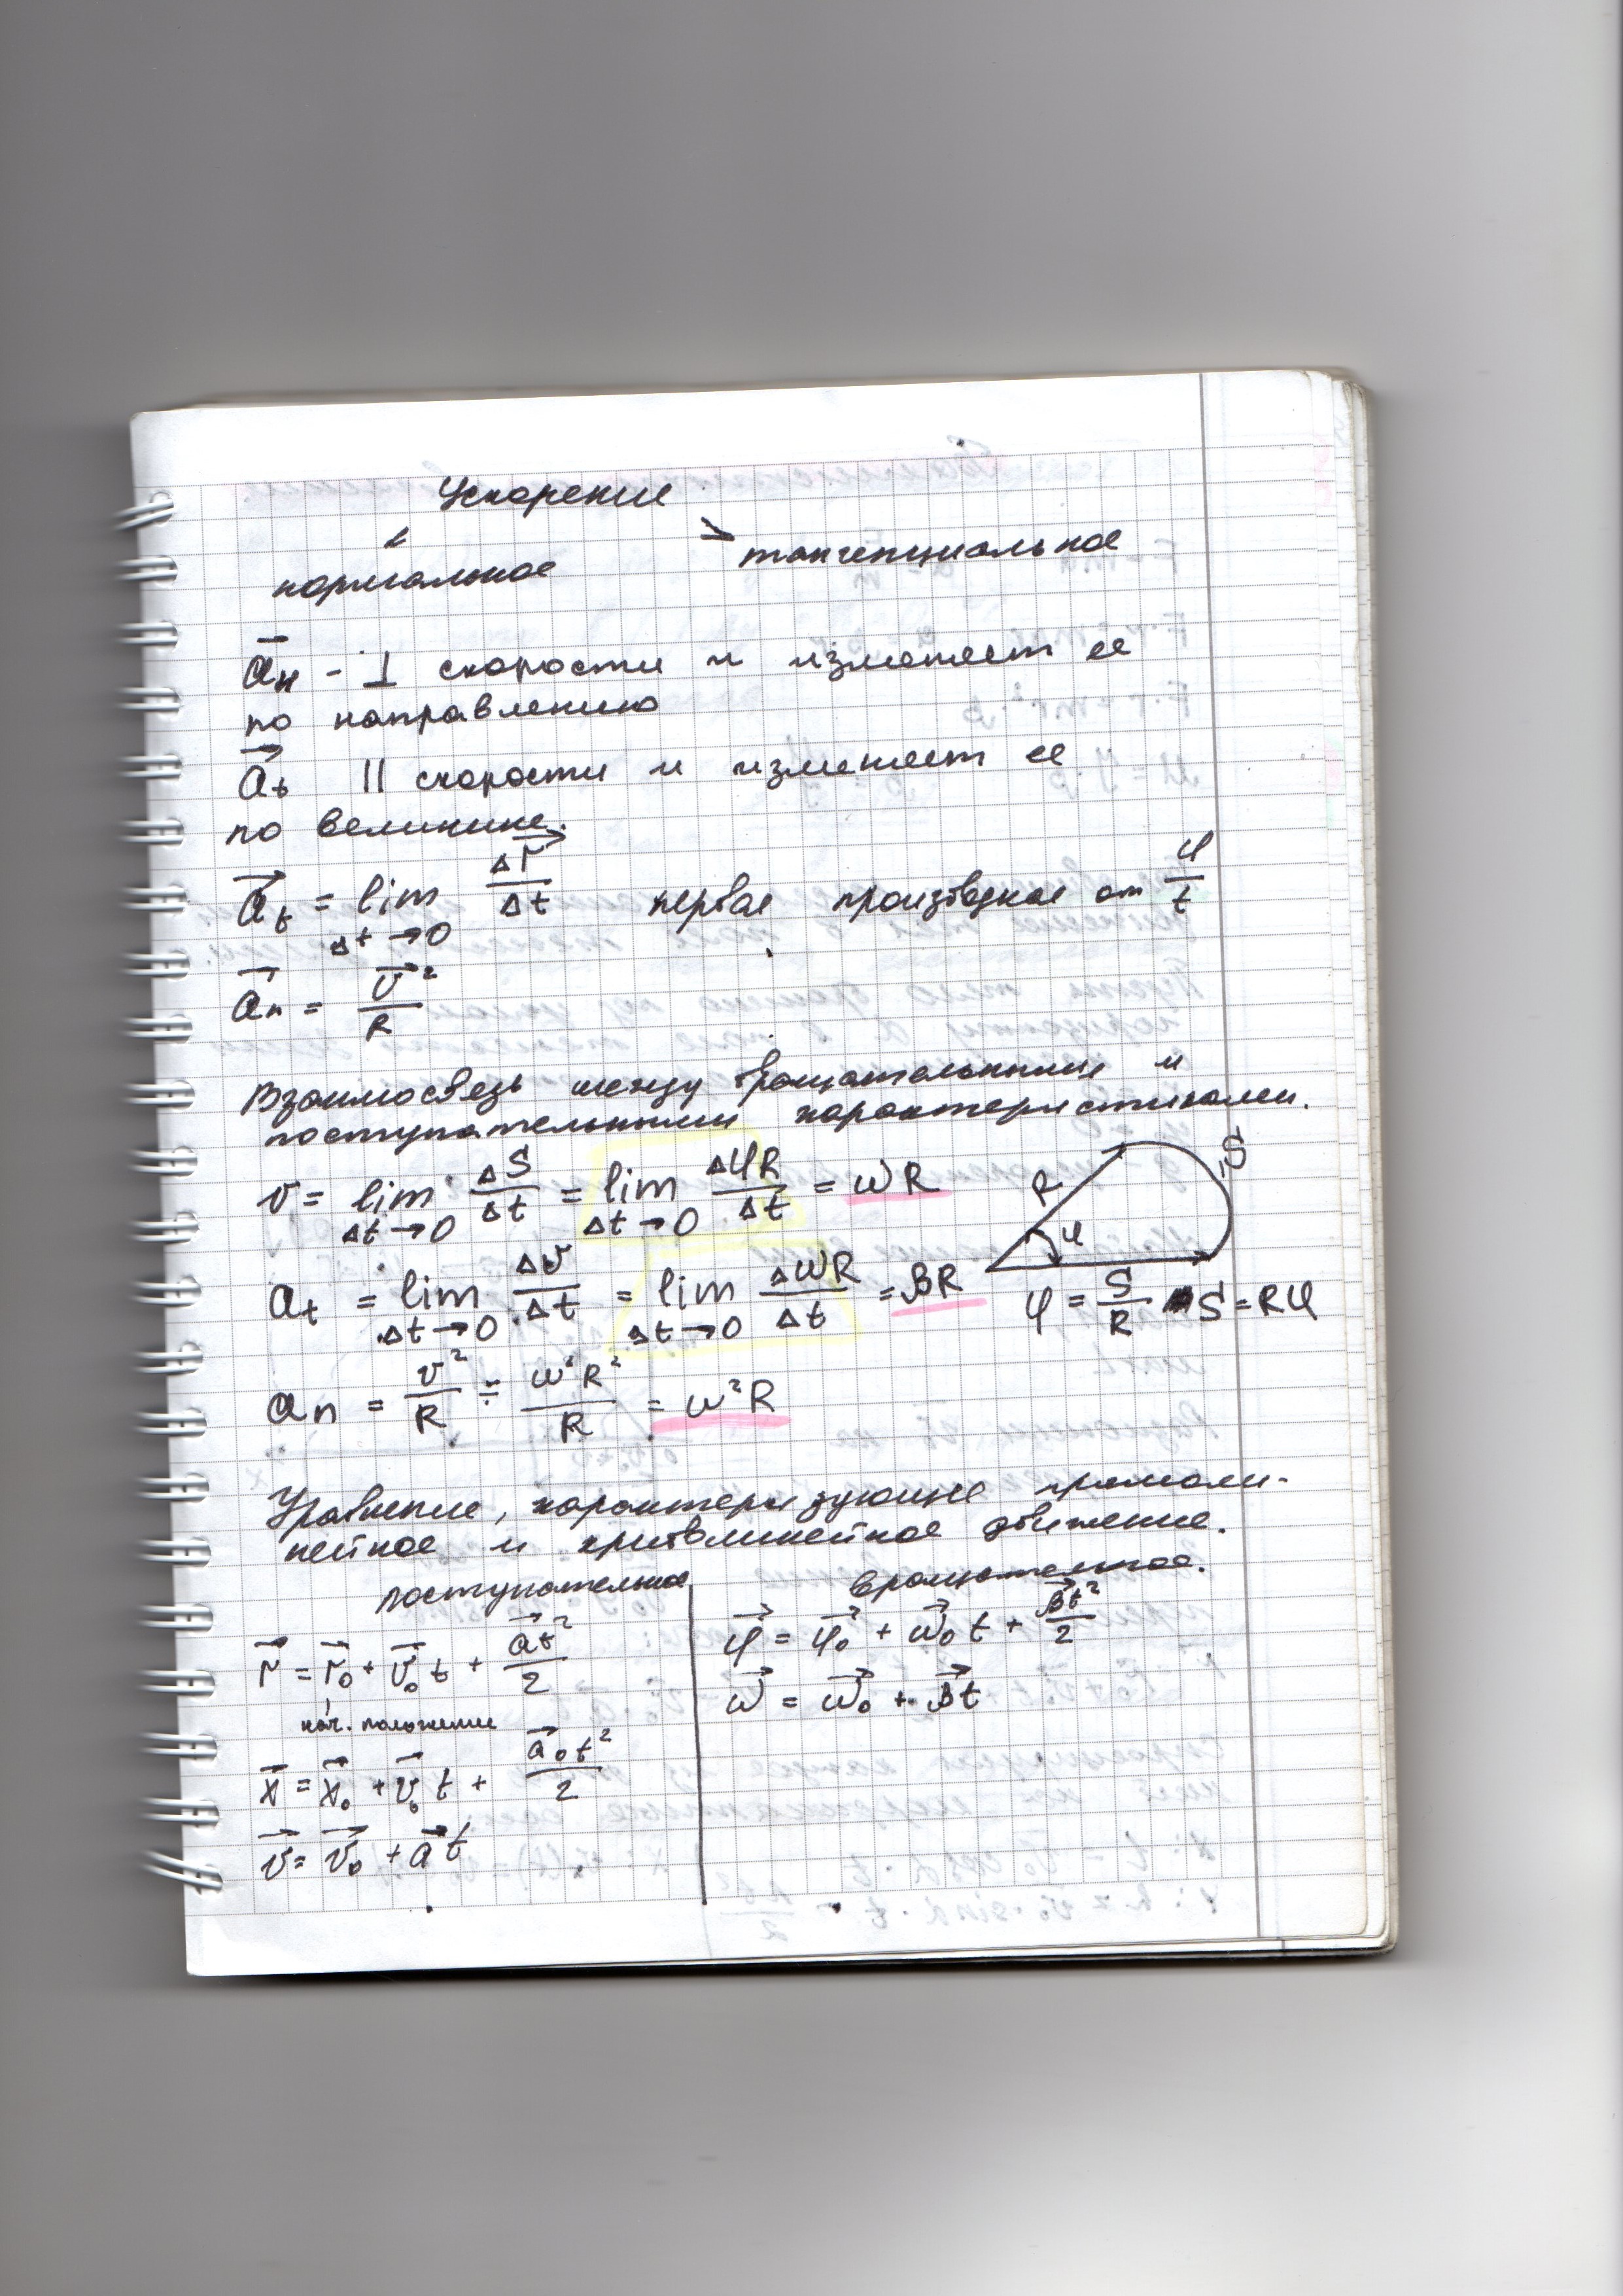 Ускорение
нормальное тангенциальное
a⃗н - ⊥ скорости и изменяет ее
по направлению
a⃗t || скорости и изменяет ее
по величине.
a⃗t = lim Δt→0 Δr⃗/Δt первая производная от φ/t
a⃗n = v⃗²/R
Взаимосвязь между вращательными и
поступательными характеристиками.
v = lim Δt→0 ΔS/Δt = lim Δt→0 ΔφR/Δt = ωR
R φ S
at = lim Δt→0 Δv/Δt = lim Δt→0 ΔωR/Δt = βR
φ = S/R S = Rφ
an = v²/R = ω²R²/R = ω²R
Уравнение, характеризующие прямоли-
нейное и криволинейное движение.
поступательное вращательное.
r⃗ = r⃗₀ + v⃗₀t + a⃗t²/2
φ⃗ = φ⃗₀ + ω⃗₀t + β⃗t²/2
нач. положение
ω⃗ = ω⃗₀ + β⃗t
x⃗ = x⃗₀ + v⃗₀t + a⃗₀t²/2
v⃗ = v⃗₀ + a⃗t